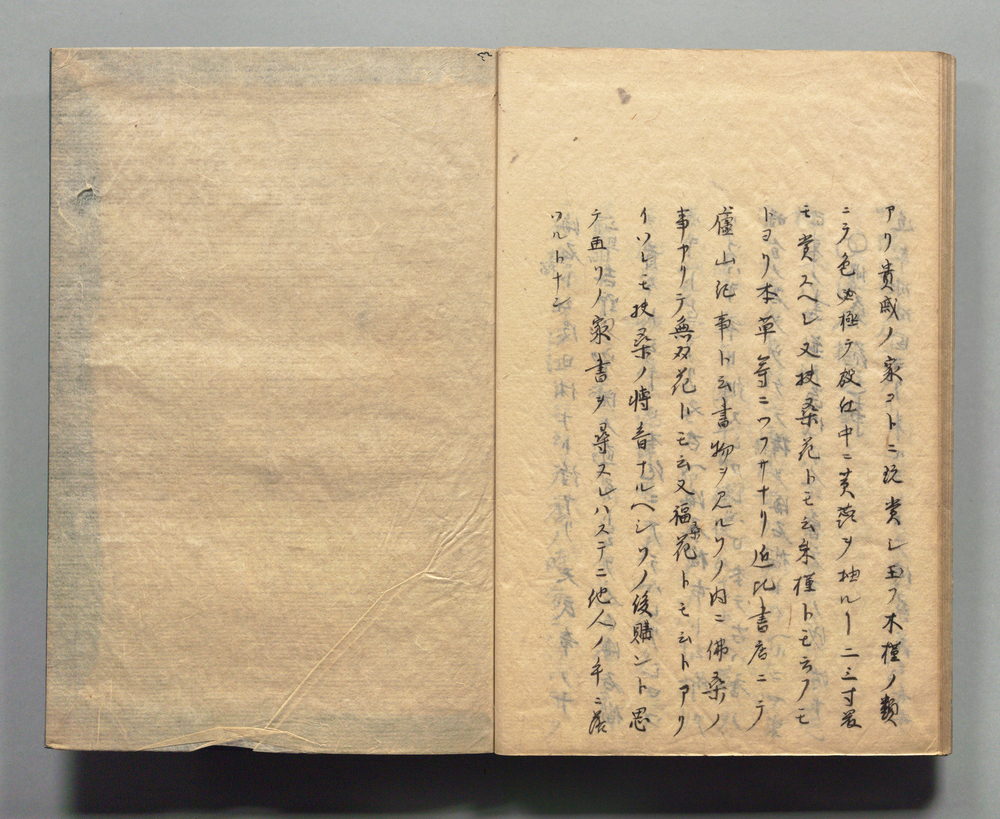 アリ貴戚ノ家コトニ玩賞シ玉フ木槿ノ類
ニテ色必極テ紅仕中ニ黄蕊ヲ抽ルー二三寸最
モ賞スヘシ又扶桑花トモ云朱槿トモ云ノモ
トヨリ本草等ニツフサナリ近比書店ニテ
廬山記事ト云書物ヲ見ルソノ内ニ佛桑ノ
事アリテ無双花トモ云又福桑花トモ云トアリ
イツレモ扶桑ノ轉音ナルヘシソノ後購ント思
テ再ソノ家書ヲ尋スレハステニ他人ノ手ニ落
ツルトナン